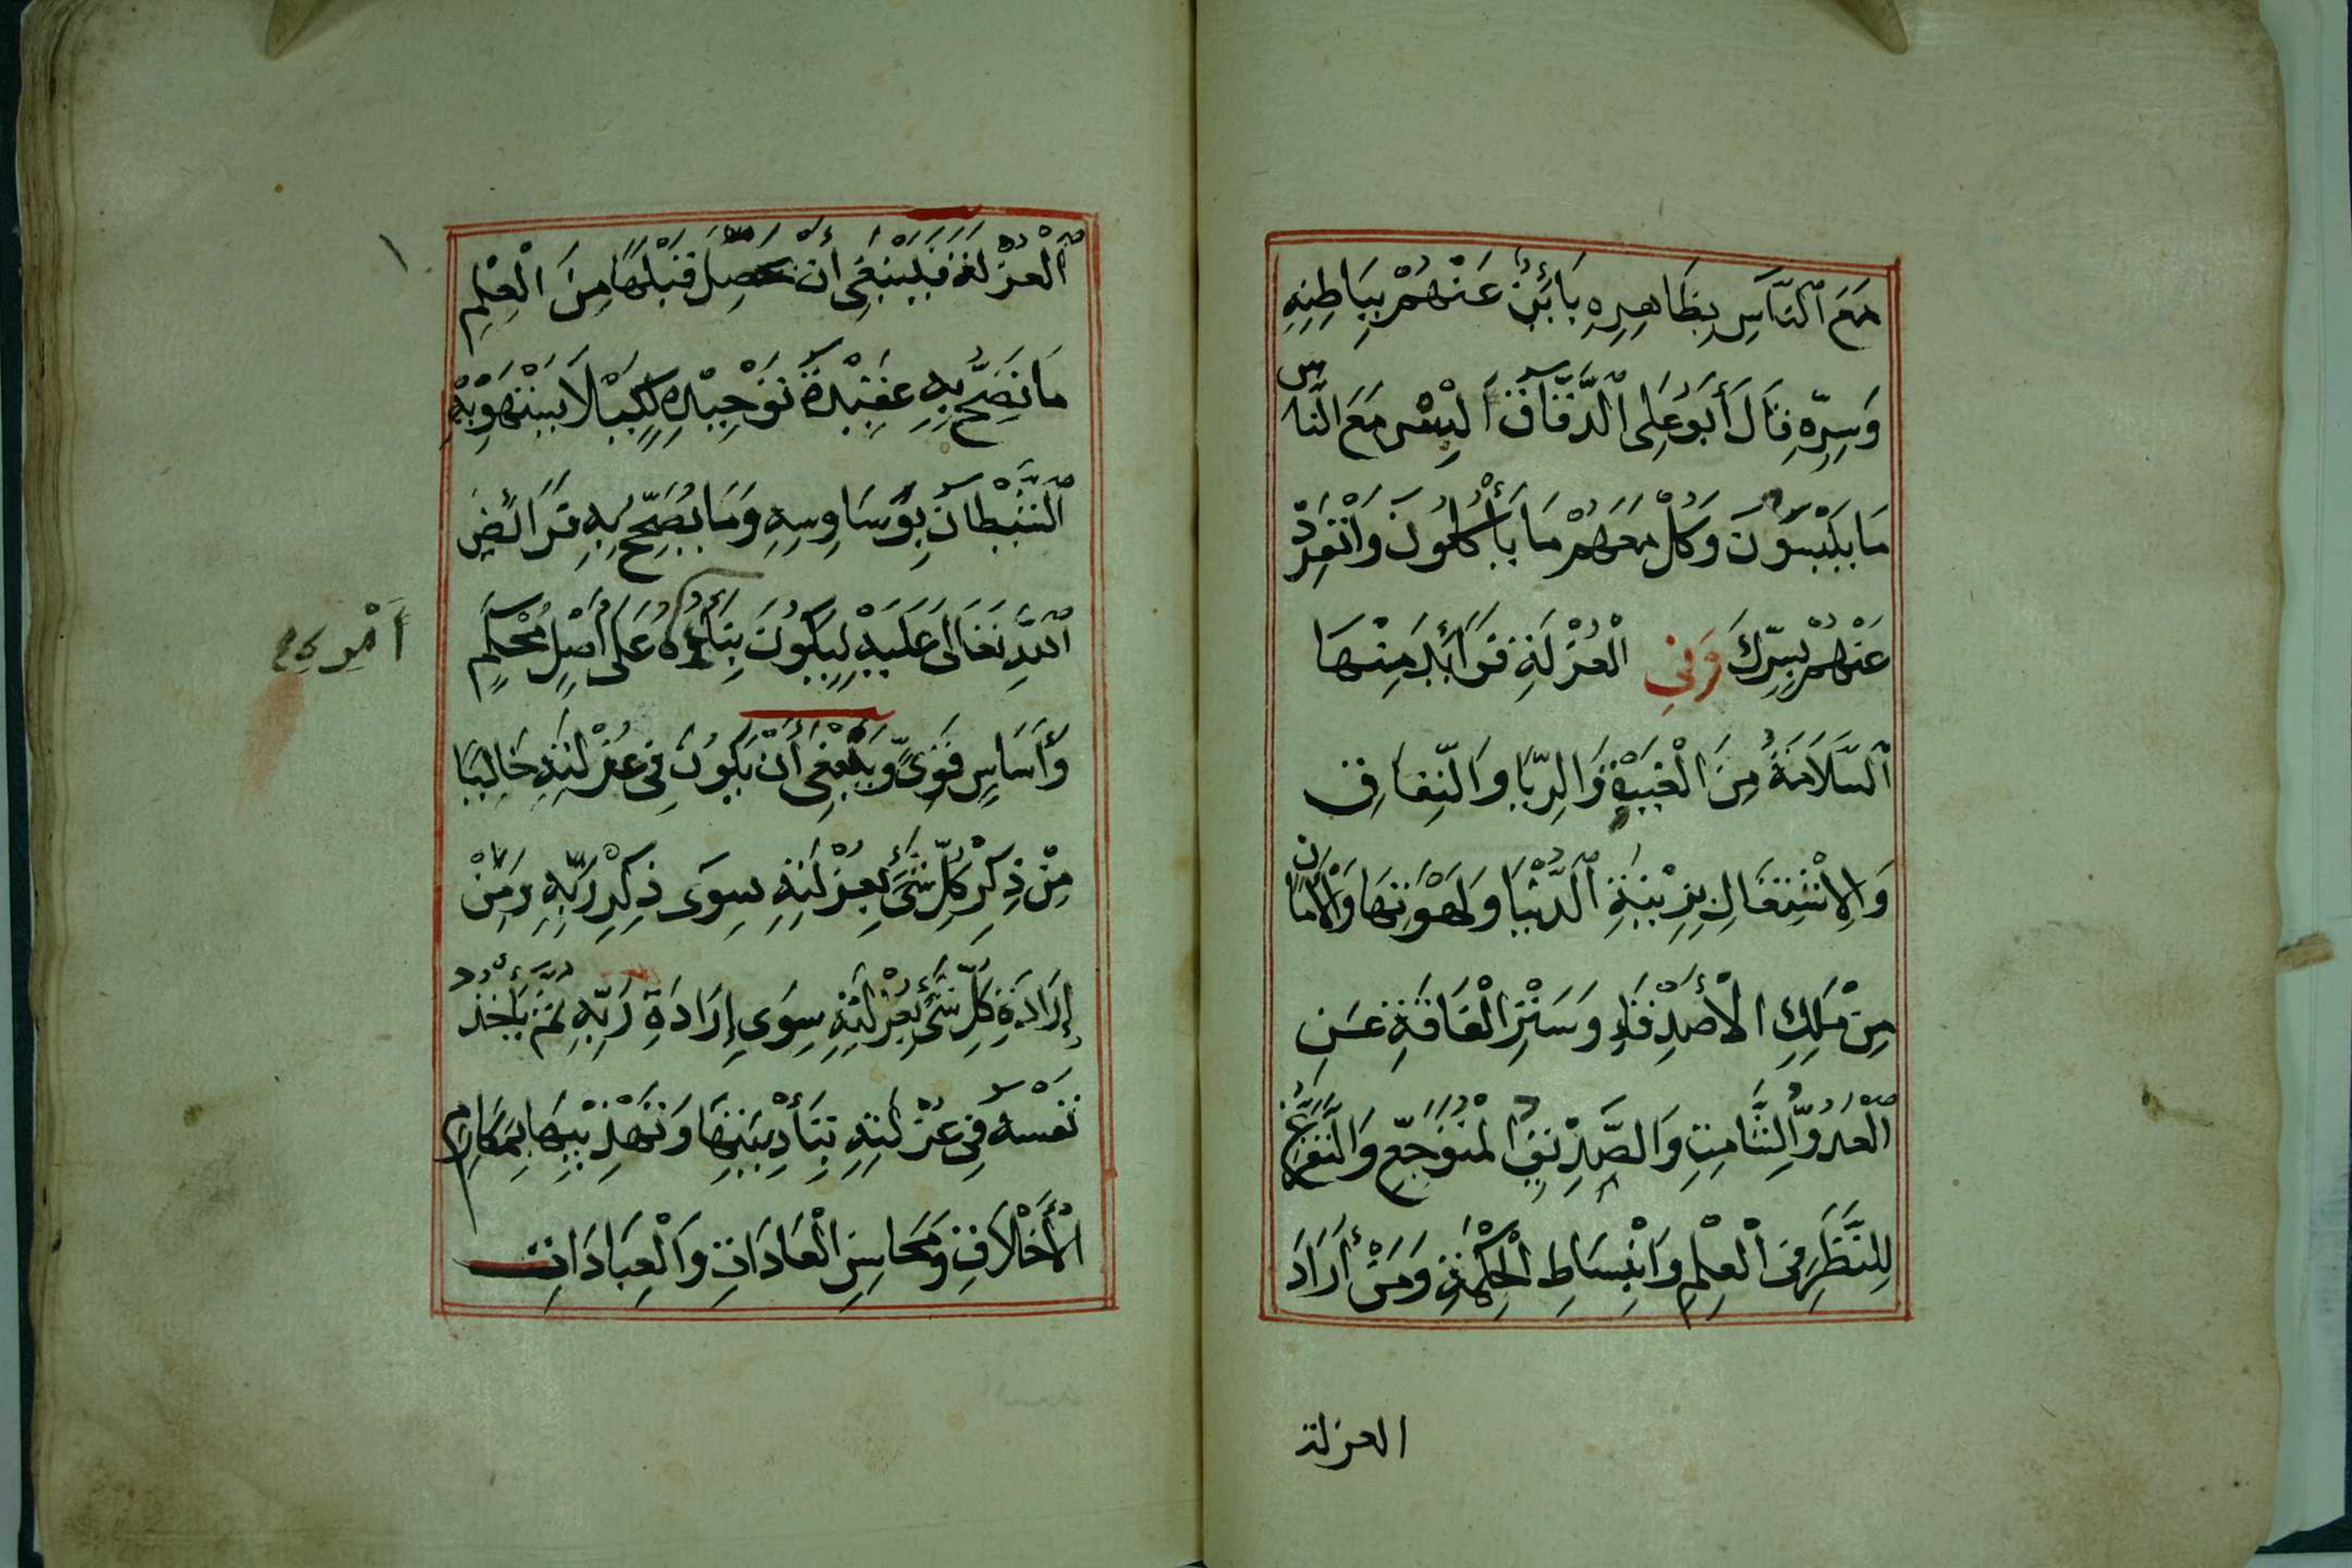 مَعَ ٱلنَّاسِ بِظَاهِرِهِ بَائِنٌ عَنْهُمْ بِبَاطِنِهِ
وَسِرِّهِ قَالَ أَبُو عَلِى ٱلدَّقَّاقِ الْبِسْ مَعَ النَّاسِ
مَا يَلْبَسُونَ وَكُلْ مَعَهُمْ مَا يَأْكُلُونَ وَانْفَرِدْ
عَنْهُمْ بِسِرِّكَ وَفِى الْعُزْلَةِ فَوَائِدَ مِنْهَا
ٱلسَّلَامَةُ مِنَ الْغِيبَةِ وَالرِّيَا وَالنِّفَاقِ
وَالِاشْتِغَالِ بِزِيْنَةِ ٱلدُّنْيَا وَلَهْوِتِهَا وَالْأَمَانُ
مِنْ مَلَكِ الْأَصْدِقَاءِ وَسَتْرِ الْفَاقَةِ عَنِ
ٱلْعَدُوِّ الشَّامِتِ وَالصَّدِيْقِ الْمُتَوَجِّعِ وَالتَّفَرُّغُ
لِلنَّظَرِ فِى الْعِلْمِ وَانْبِسَاطِ الْحِكْمَةِ وَمَنْ أَرَادَ
العزلة
ٱلْعُزْلَةَ فَيَنْبَغِى أَنْ يُحَصِّلَ قَبْلَهَا مِنَ الْعِلْمِ
مَا تَصِحُّ بِهِ عَقِيْدَةُ تَوْحِيْدِهِ لِكَيْلَا يَسْتَهْوِيْهِ
ٱلشَّيْطَانُ بِوَسَاوِسِهِ وَمَا يُصَحِّحُ بِهِ فَرَائِضَ
ٱللَّهِ تَعَالَى عَلَيْهِ لِيَكُونَ بِنَاؤُهُ عَلَى أَصْلٍ مُحْكَمٍ
أَمْرِهِ
وَأَسَاسٍ قَوِىٍّ وَيَنْبَغِى أَنْ يَكُونَ فِى عُزْلَتِهِ خَالِيًا
مِنْ ذِكْرِ كُلِّ شَىْءٍ بِعُزْلَتِهِ سِوَى ذِكْرِ رَبِّهِ وَمِنْ
إِرَادَةِ كُلِّ شَىْءٍ بِعُزْلَتِهِ سِوَى إِرَادَةِ رَبِّهِ ثُمَّ يَأْخُذُ
نَفْسَهُ فِى عُزْلَتِهِ بِتَأْدِيْبِهَا وَتَهْذِيْبِهَا بِمَكَارِمِ
الْأَخْلَاقِ وَمَحَاسِنِ الْعَادَاتِ وَالْعِبَادَاتِ